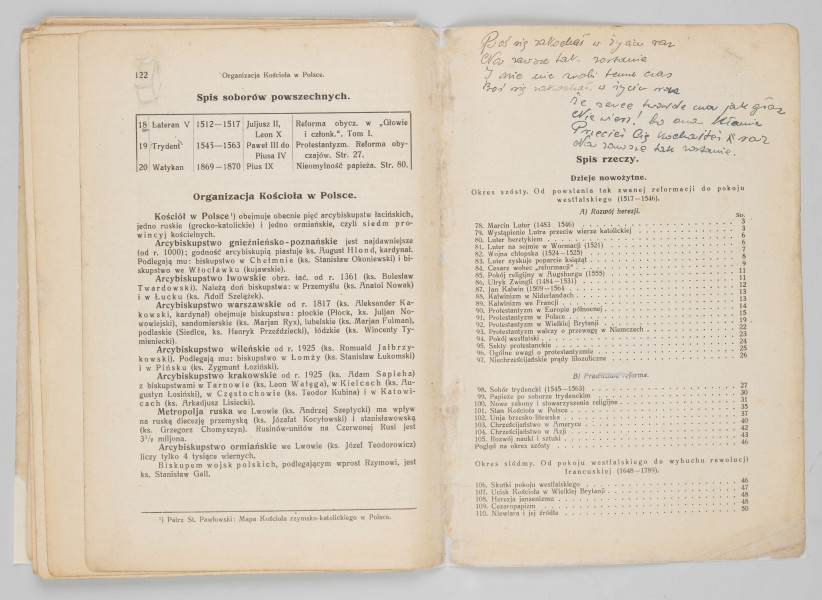 122
Organizacja Kościoła w Polsce.
Spis soborów powszechnych.
18 Lateran V 1512—1517 Juljusz II, Reforma obycz. w „Głowie
Leon X i członk.". Tom I.
19 Trydent 1545—1563 Paweł III do Protestantyzm. Reforma oby-
Piusa IV czajów. Str. 27.
20 Watykan 1869—1870 Pius IX Nieomylność papieża. Str. 80.
Organizacja Kościoła w Polsce.
Kościół w Polsce¹) obejmuje obecnie pięć arcybiskupstw łacińskich,
jedno ruskie (grecko-katolickie) i jedno ormiańskie, czyli siedm pro-
wincyj kościelnych.
Arcybiskupstwo gnieźnieńsko-poznańskie jest najdawniejsze
(od r. 1000); godność arcybiskupią piastuje ks. August Hlond, kardynał.
Podlegają mu: biskupstwo w Chełmnie (ks. Stanisław Okoniewski) i bi-
skupstwo we Włocławku (kujawskie).
Arcybiskupstwo lwowskie obrz. łac. od r. 1361 (ks. Bolesław
Twardowski). Należą doń biskupstwa: w Przemyślu (ks. Anatol Nowak)
i w Łucku (ks. Adolf Szelążek).
Arcybiskupstwo warszawskie od r. 1817 (ks. Aleksander Ka-
kowski, kardynał) obejmuje biskupstwa: płockie (Płock, ks. Juljan No-
wowiejski), sandomierskie (ks. Marjan Ryx), lubelskie (ks. Marjan Fulman),
podlaskie (Siedlce, ks. Henryk Przeździecki), łódzkie (ks. Wincenty Ty-
mieniecki).
Arcybiskupstwo wileńskie od r. 1925 (ks. Romuald Jałbrzy-
kowski). Podlegają mu: biskupstwo w Łomży (ks. Stanisław Łukomski)
i w Pińsku (ks. Zygmunt Łoziński).
Arcybiskupstwo krakowskie od r. 1925 (ks. Adam Sapieha)
z biskupstwami w Tarnowie (ks. Leon Wałęga), w Kielcach (ks. Au-
gustyn Losiński), w Częstochowie (ks. Teodor Kubina) i w Katowi-
cach (ks. Arkadjusz Lisiecki).
Metropolja ruska we Lwowie (ks. Andrzej Szeptycki) ma wpływ
na ruską diecezję przemyską (ks. Józafat Kocyłowski) i stanisławowską
(ks. Grzegorz Chomyszyn). Rusinów-unitów na Czerwonej Rusi jest
3¹/₂ miljona.
Arcybiskupstwo ormiańskie we Lwowie (ks. Józef Teodorowicz)
liczy tylko 4 tysiące wiernych.
Biskupem wojsk polskich, podlegającym wprost Rzymowi, jest
ks. Stanisław Gall.
¹) Patrz St. Pawłowski: Mapa Kościoła rzymsko-katolickiego w Polsce.
się zakochał w życiu raz
Na zawsze tak zostanie
I nie nie zrobi temu czas
Boś się zakochał w życiu raz
że serce twarde ma jak głaz
Nie wierz! bo ona kłamie
Przecież Cię kochałeś raz
Na zawsze tak zostanie.
Spis rzeczy.
Dzieje nowożytne.
Okres szósty. Od powstania tak zwanej reformacji do pokoju
westfalskiego (1517—1546).
A) Rozwój herezji.
Str.
78. Marcin Luter (1483 1546) 3
79. Wystąpienie Lutra przeciw wierze katolickiej 3
80. Luter heretykiem 6
81. Luter na sejmie w Wormacji (1521) 6
82. Wojna chłopska (1524—1525) 7
83. Luter zyskuje poparcie książąt 8
84. Cesarz wobec „reformacji" 9
85. Pokój religijny w Augsburgu (1555) 11
86. Ulryk Zwingli (1484—1531) 11
87. Jan Kalwin (1509—1564 12
88. Kalwinizm w Niderlandach 13
89. Kalwinizm we Francji 13
90. Protestantyzm w Europie północnej 14
91. Protestantyzm w Polsce 15
92. Protestantyzm w Wielkiej Brytanji 19
93. Protestantyzm walczy o przewagę w Niemczech 22
94. Pokój westfalski 23
95. Sekty protestanckie 24
96. Ogólne uwagi o protestantyzmie 25
97. Niechrześcijańskie prądy filozoficzne 26
B) Prawdziwa reforma.
98. Sobór trydencki (1545—1563) 27
99. Papieże po soborze trydenckim 30
100. Nowe zakony i stowarzyszenia religijne 31
101. Stan Kościoła w Polsce 35
102. Unja brzesko-litewska 37
103. Chrześcijaństwo w Ameryce 40
104. Chrześcijaństwo w Azji 42
105. Rozwój nauki i sztuki 43
Pogląd na okres szósty 46
Okres siódmy. Od pokoju westfalskiego do wybuchu rewolucji
francuskiej (1648—1789).
106. Skutki pokoju westfalskiego 46
107. Ucisk Kościoła w Wielkiej Brytanji 47
108. Herezja jansenizmu 48
109. Cezaropapizm 48
110. Niewiara i jej źródła 50